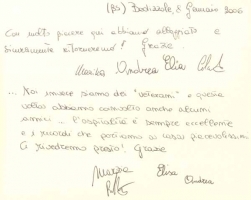 (BS) Bedizzole, 8 Gennaio 2006
Con molto piacere qui abbiamo alloggiato e
sicuramente ritorneremo! Grazie
Marika Andrea Elia
... Noi invece siamo dei "veterani" e questa
volta abbiamo coinvolto anche alcuni
amici ... l'ospitalità è sempre eccellente
e i ricordi che portiamo a casa piacevolissimi.
Ci rivedremo presto! Grazie
Elisa
Andrea